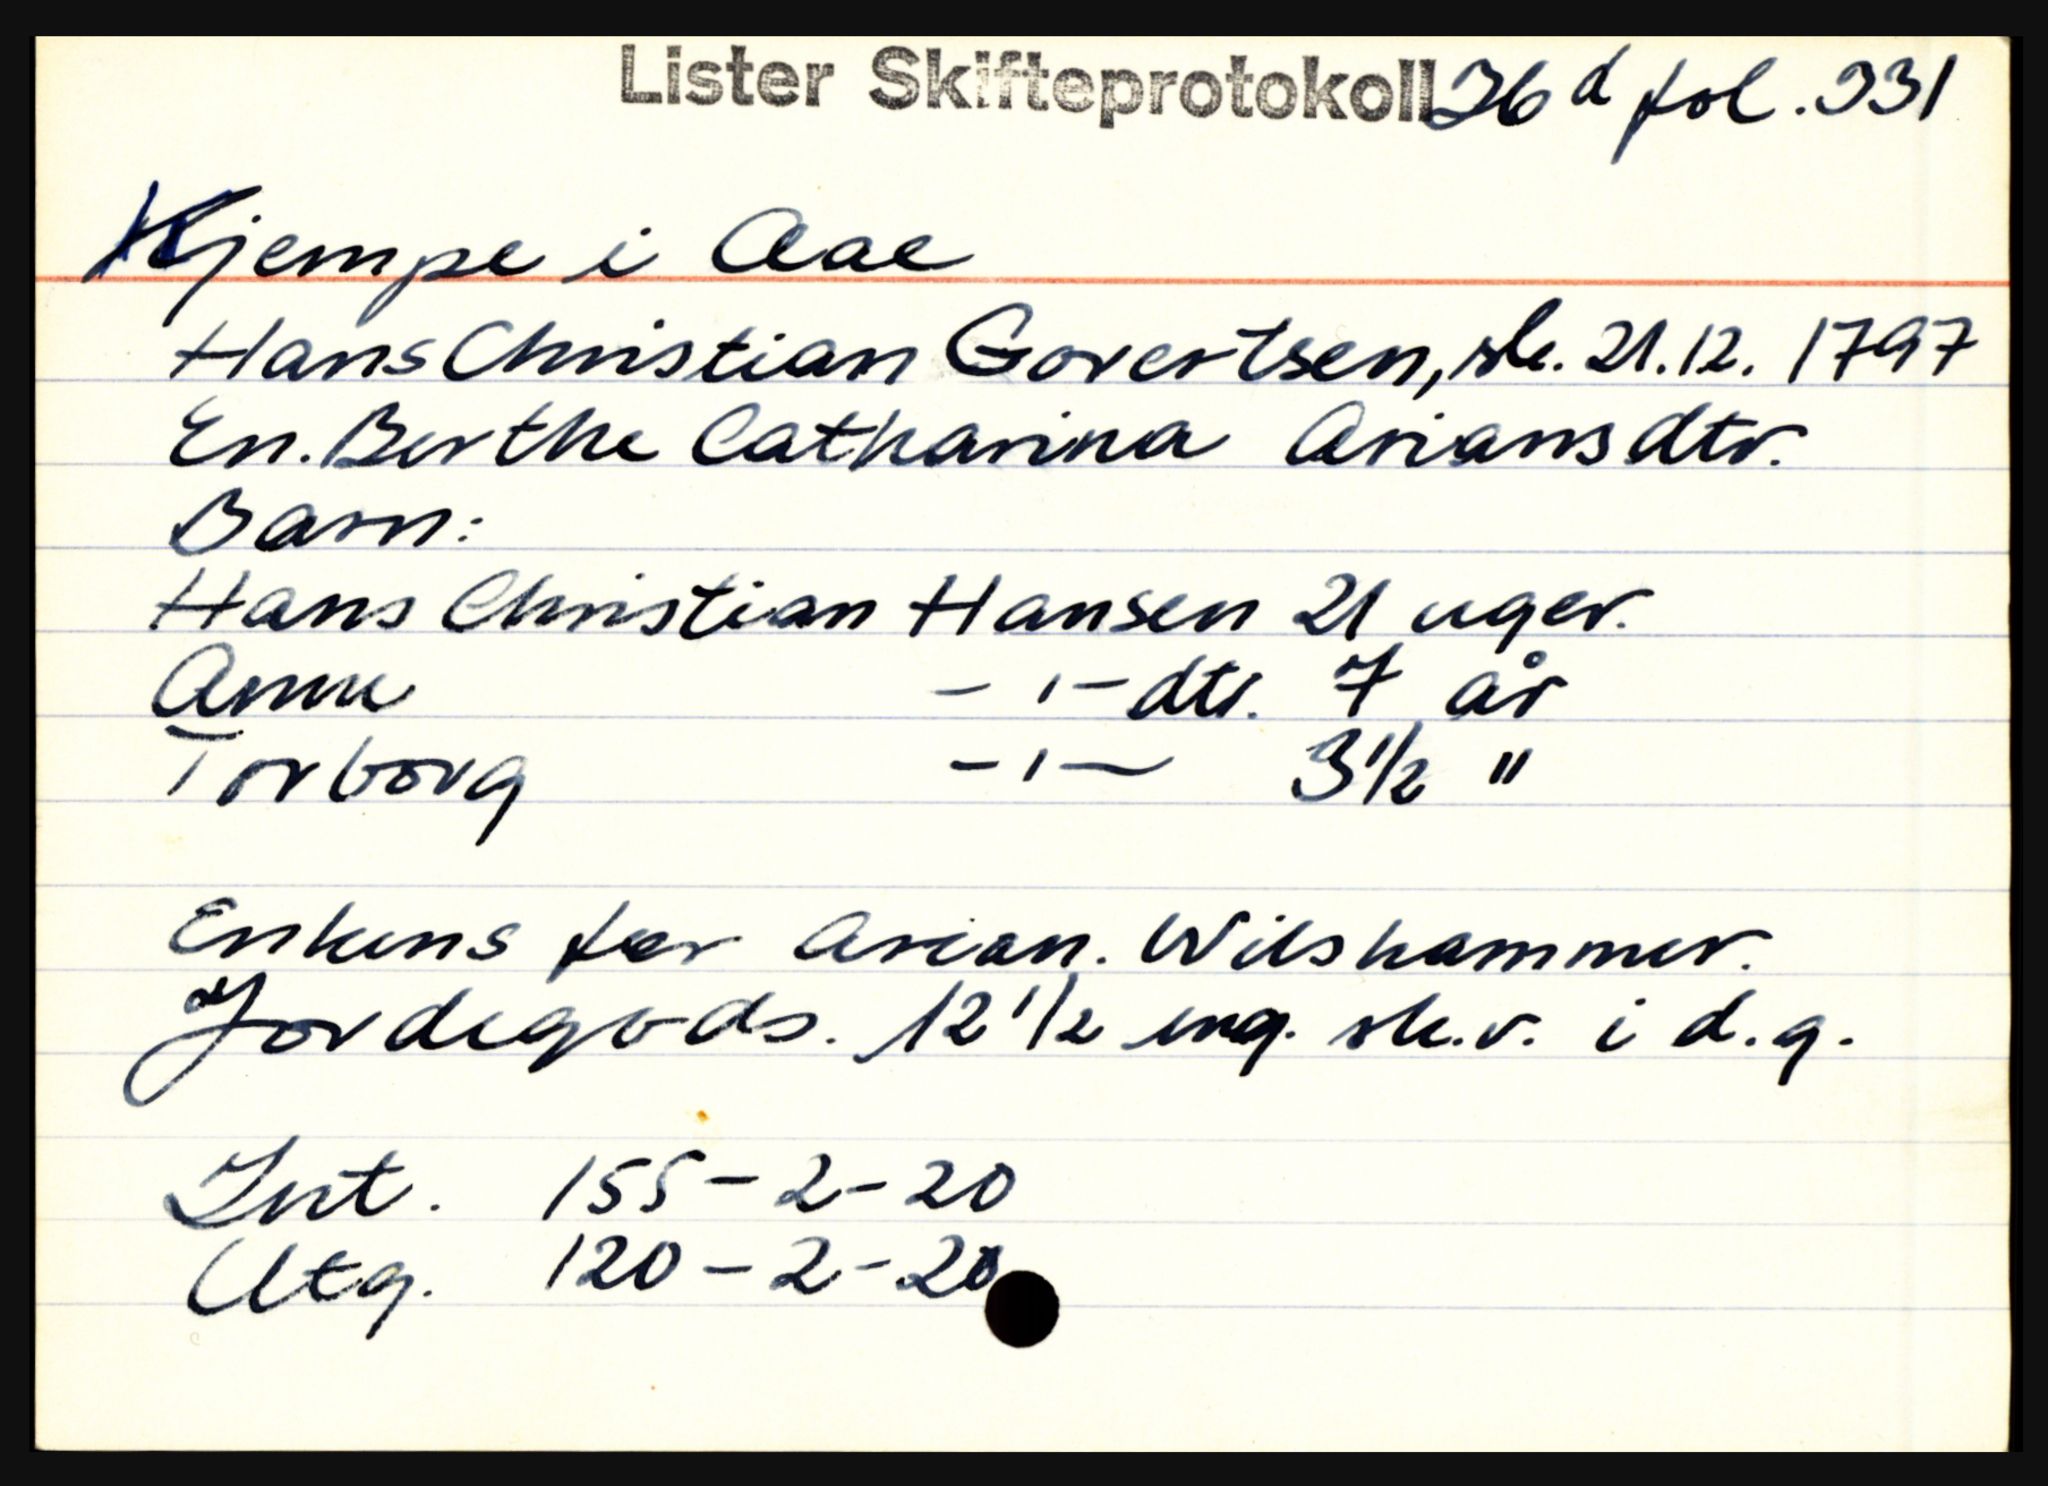 Lister Skifteprotokoll 36 d fol. 331
Kjempe i Aae
Hans Christian Govertsen, sk. 21.12. 1797
En. Berthe Catharina Ariansdtr.
Barn:
Hans Christian Hansen 21 uger.
Anne - ı - dtr. 7 år
Torborg - ı - 3 1/2 "
Enkens far Arian. Wilshammer.
Jordegods. 12 1/2 eng. sk.v. i d.g.
Int. 155 - 2 - 20
Utg. 120 - 2 - 20